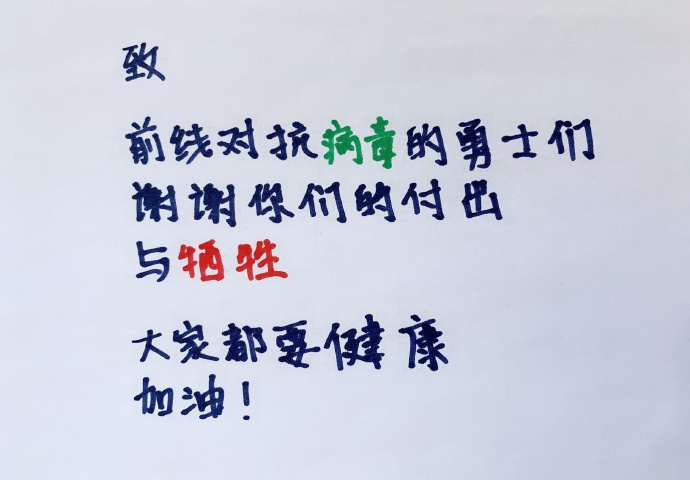 致
前线对抗病毒的勇士们
谢谢你们的付出
与牺牲
大家都要健康
加油！